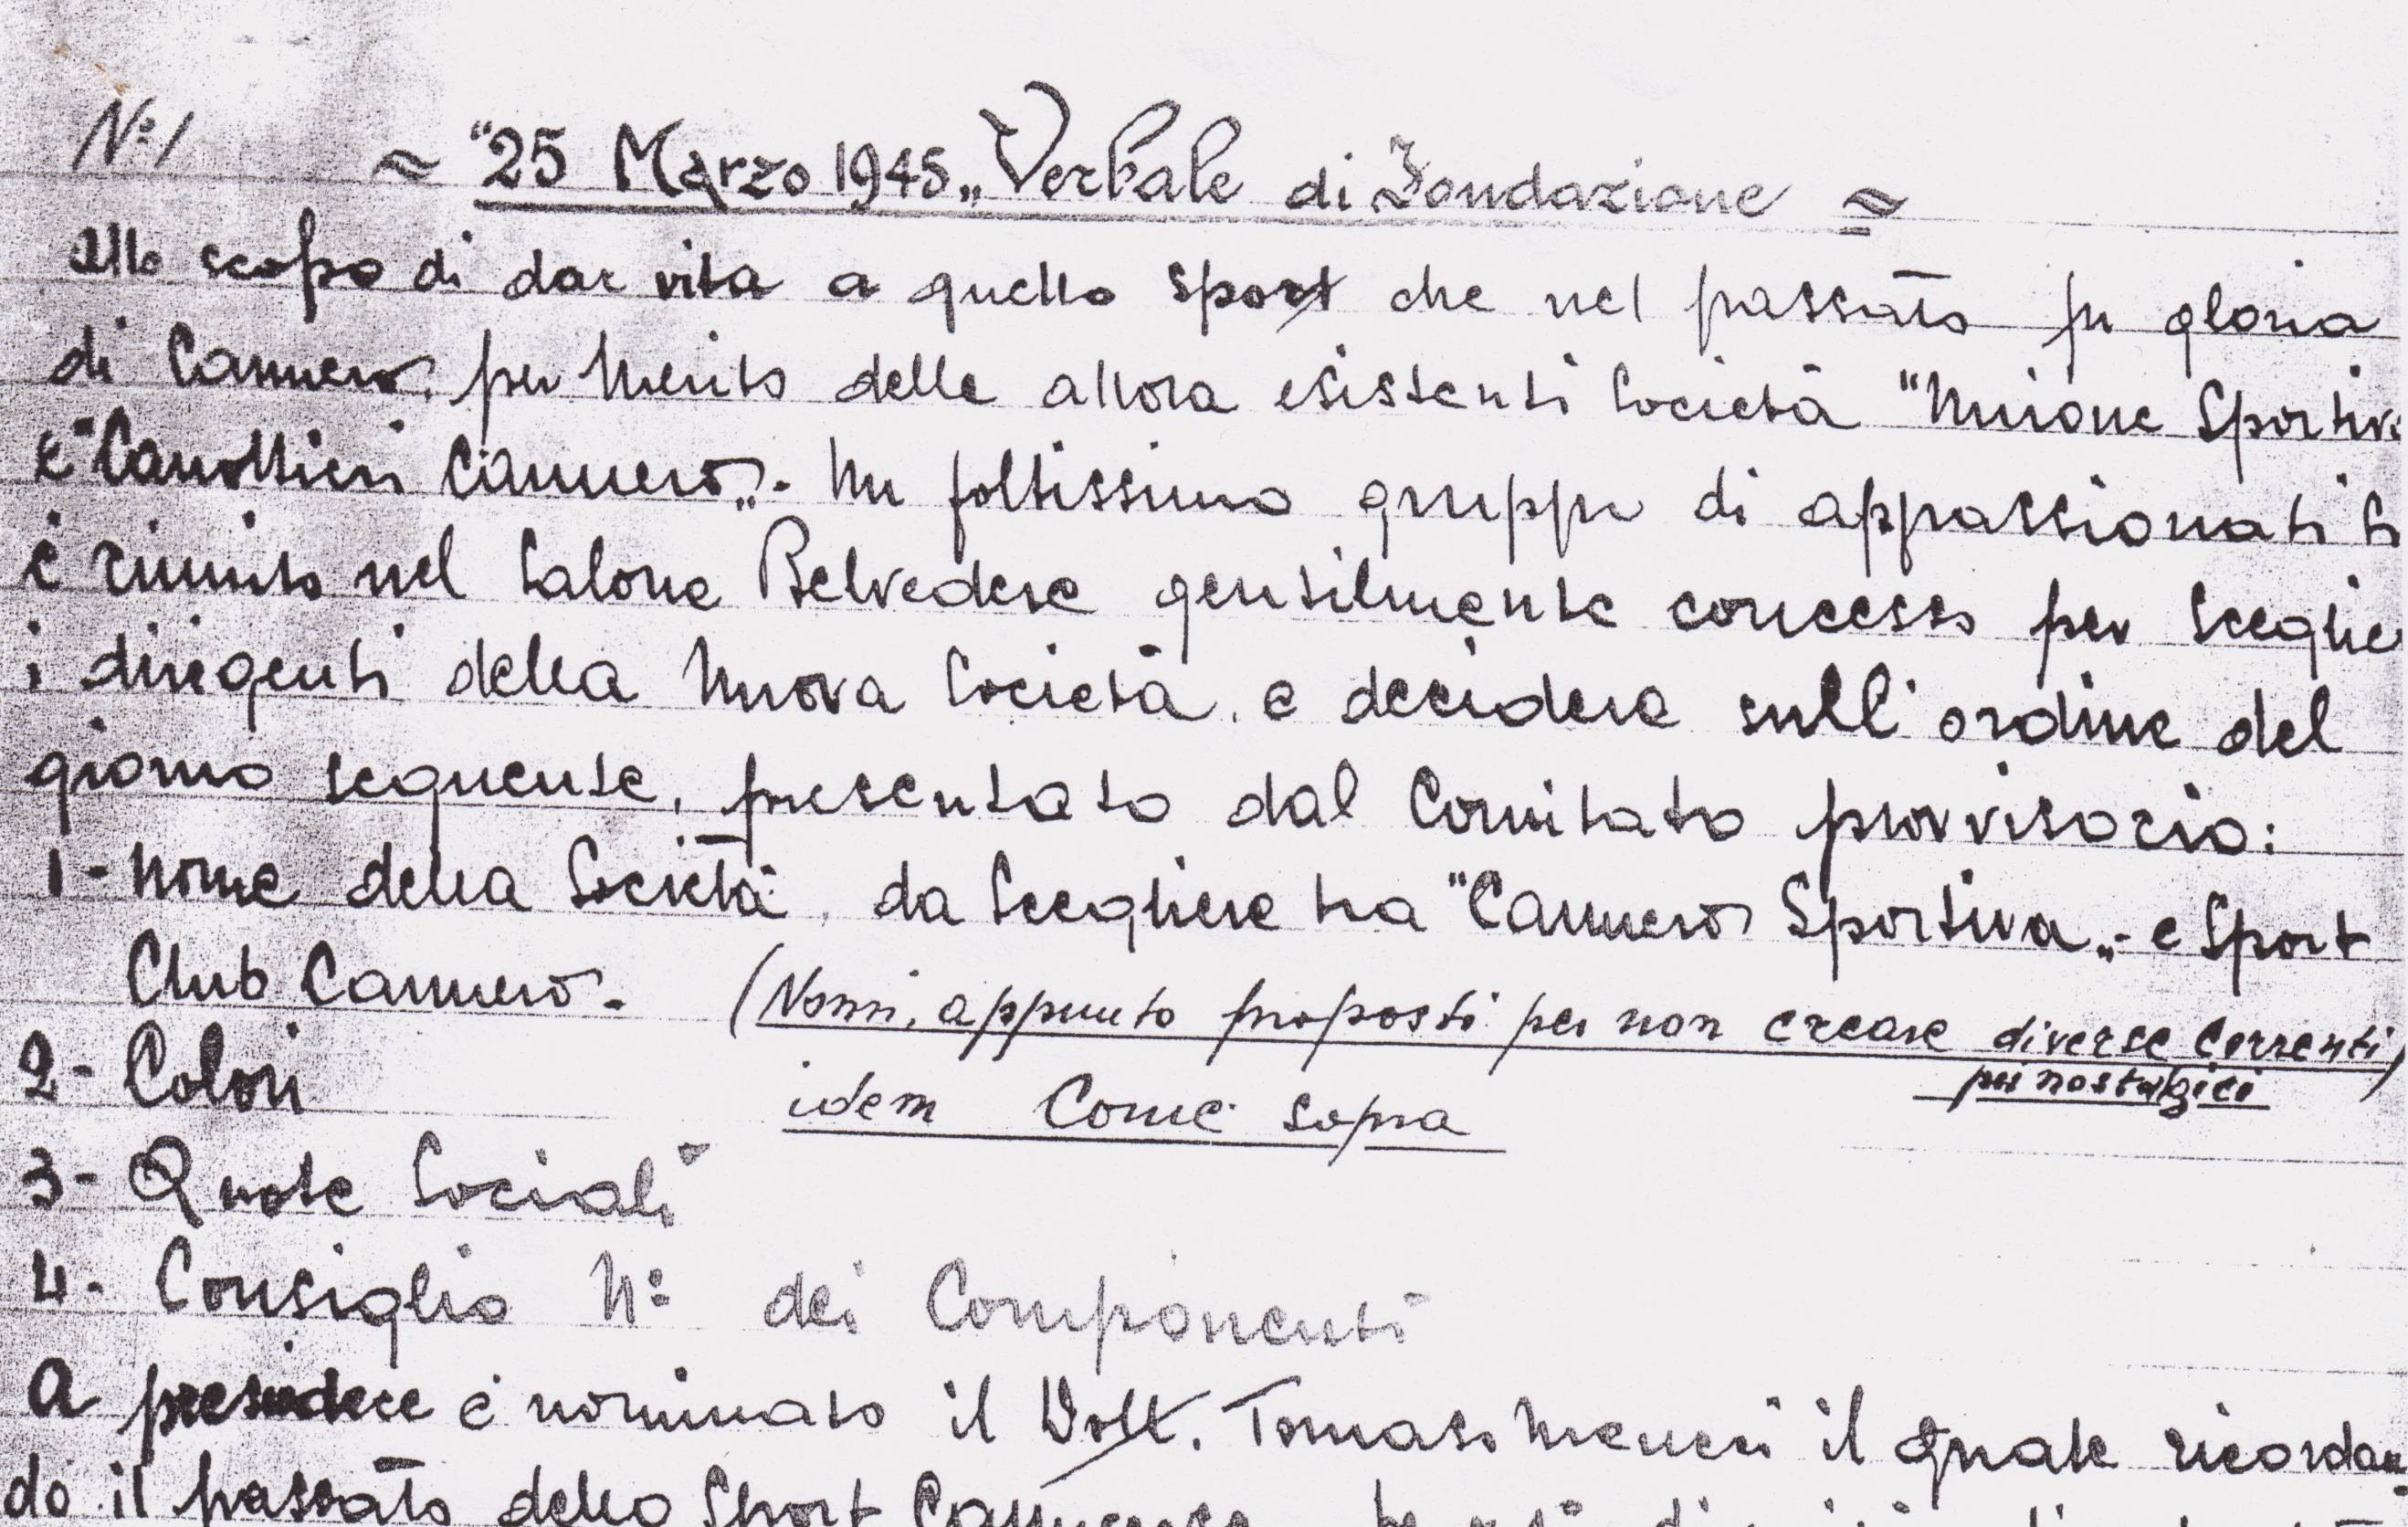 N:1
≈ "25 Marzo 1945„ Verbale di Fondazione ≈
Allo scopo di dar vita a quello sport che nel passato fu gloria
di Cannero, per merito delle allora esistenti Società "Unione Sportiva
e "Canottieri Cannero„. Un foltissimo gruppo di appassionati si
è riunito nel Salone Belvedere gentilmente concesso per sceglie
i dirigenti della Nuova Società, e decidere sull'ordine del
giorno seguente, presentato dal Comitato provvisorio:
1- Nome della Società, da Scegliere tra "Cannero Sportiva„- e Sport
Club Cannero. (Nomi, appunto proposti per non creare diverse correnti)
pei nostalgici
2- Colori idem come sopra
3- Quote Sociali
4- Consiglio N: dei Componenti
A presiedere è nominato il Dott. Tomaso il Quale ricordan
do il passato dello Sport Cannerese